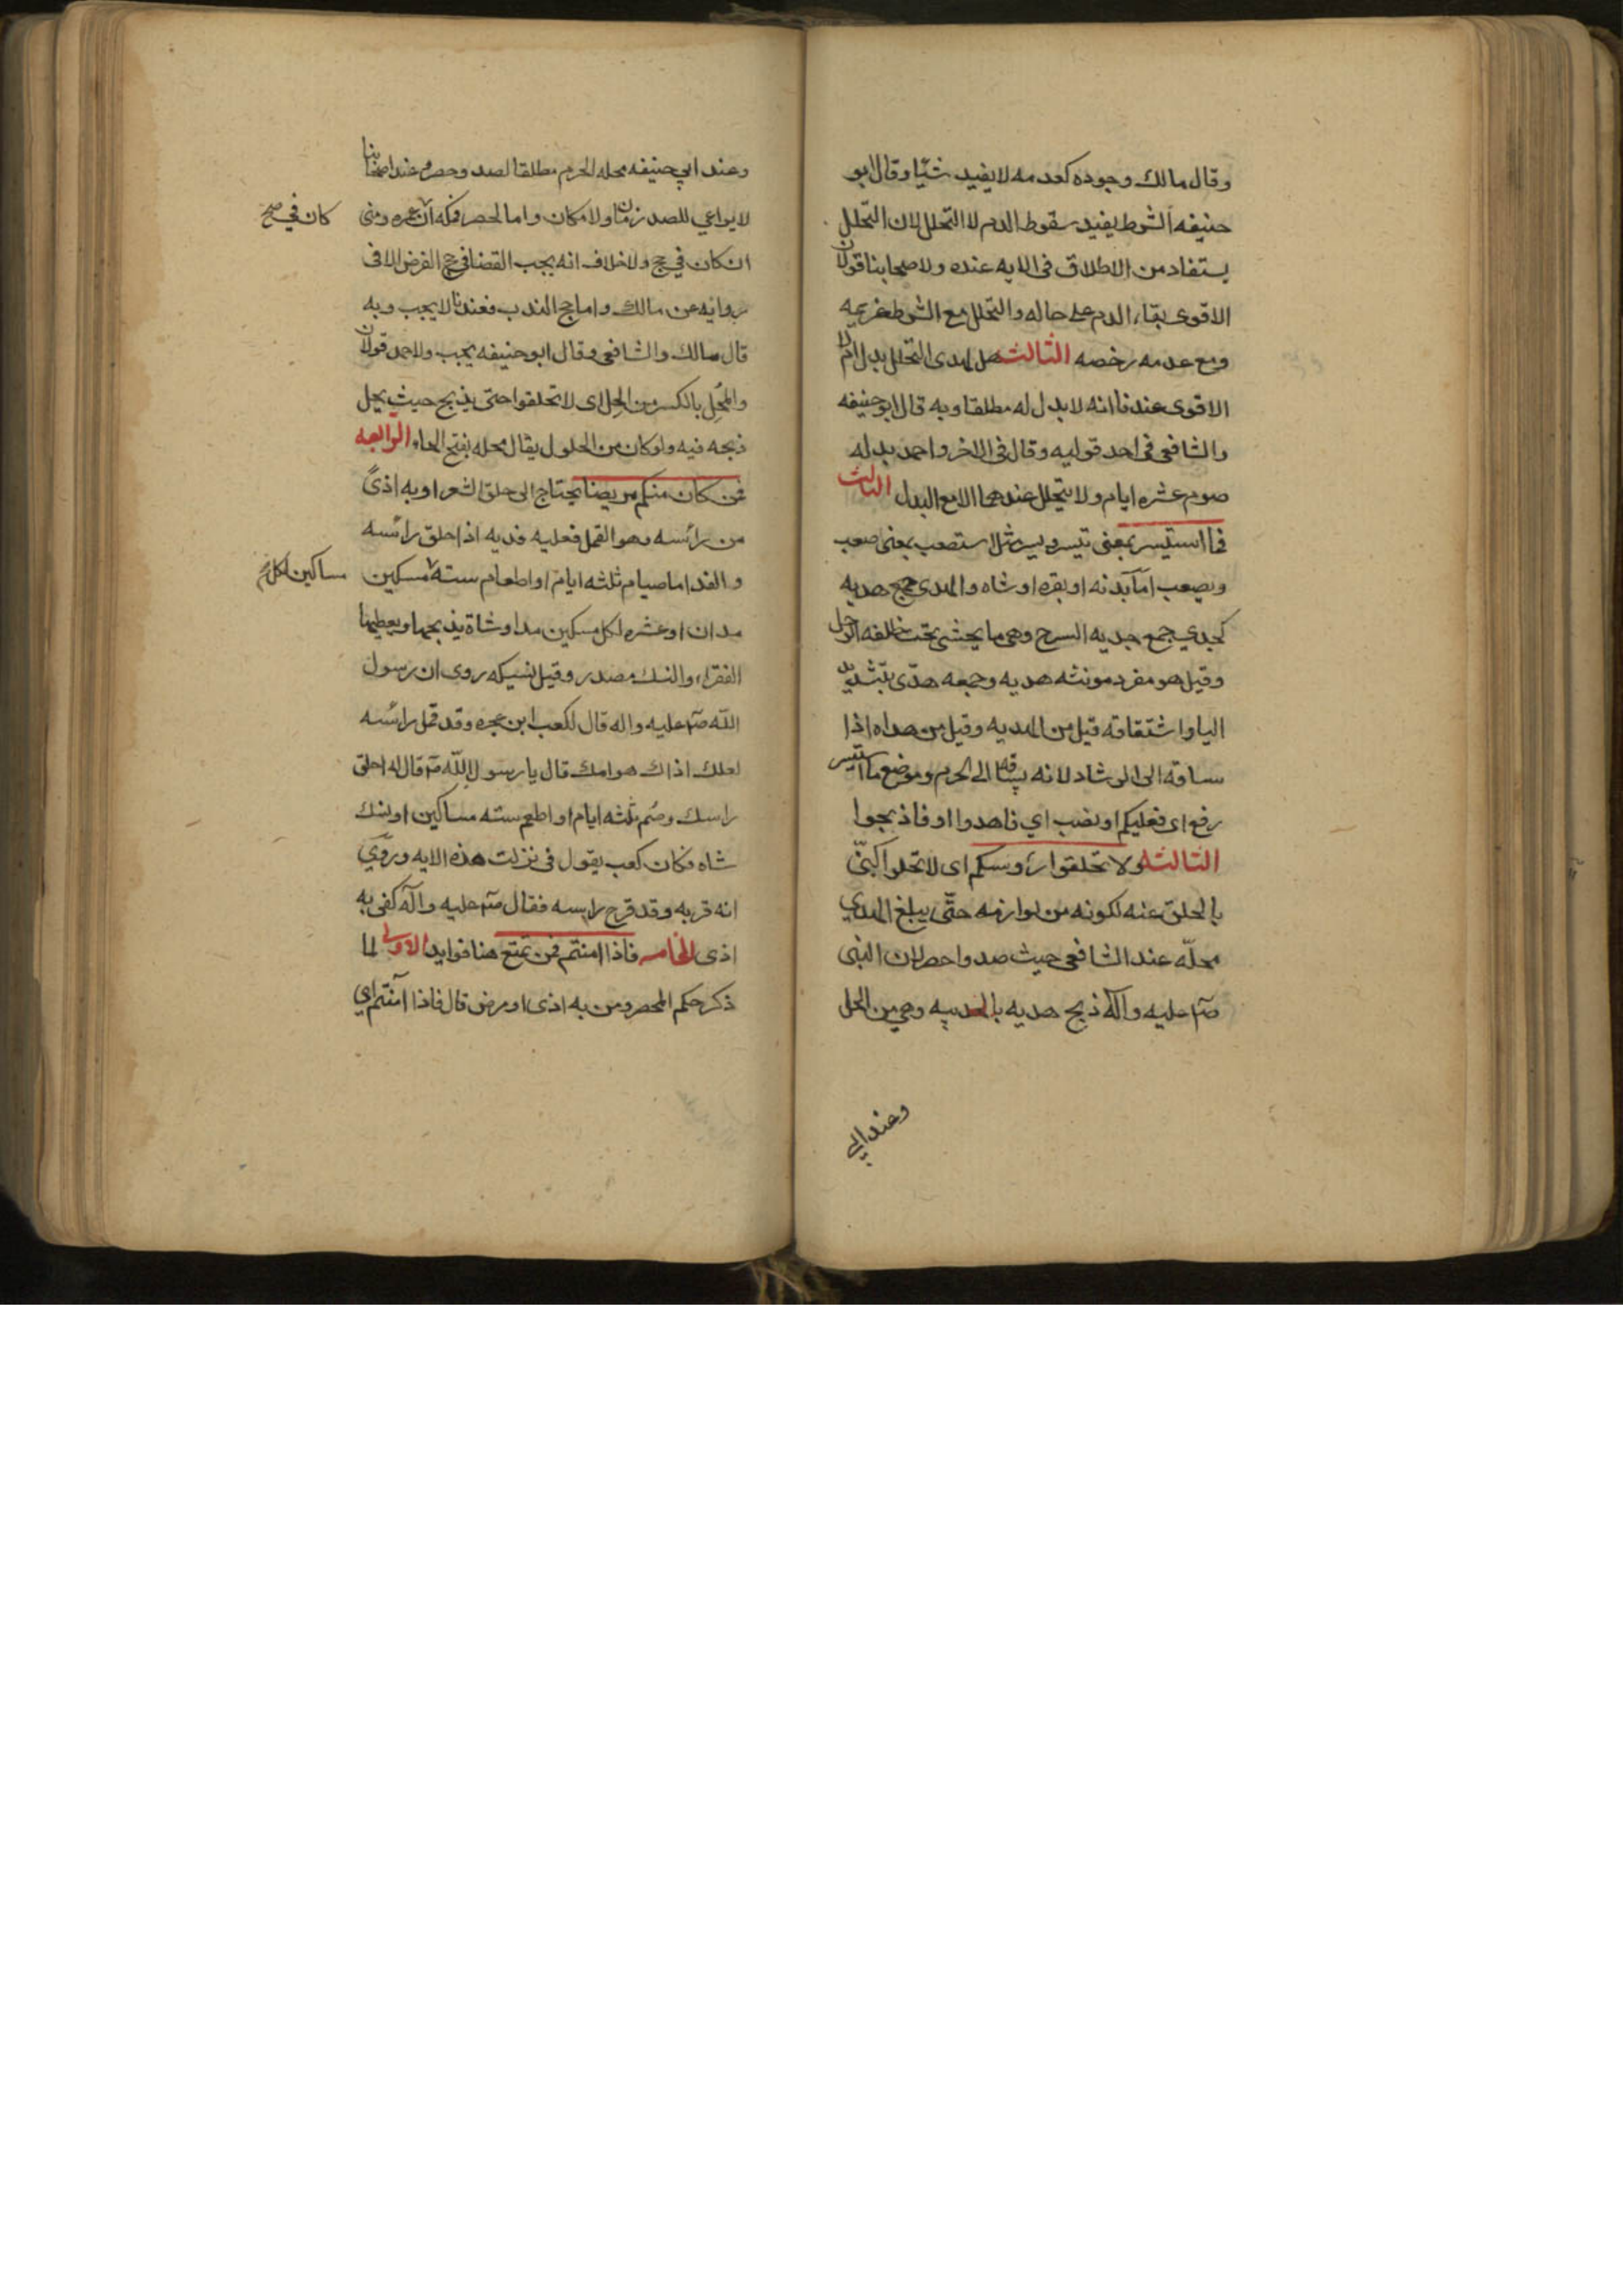 وقال مالك وجوده كعدمه لا يفيد شيًا وقال ابو
حنيفه الشرط يفيد سقوط الدم لا التحلل لان التحلل
يستفاد من الاطلاق فى الايه عنده ولاصحابنا قولان
الاقوى بقاء الدم على حاله والتحلل مع الشرط عزيمه
ومع عدمه رخصه الثالث هل لهدى التحلل بدل ام لا
الاقوى عندنا انه لا بدل له مطلقا وبه قال ابو حنيفه
والشافعى فى احد قوليه وقال فى الاخر واحمد بدله
صوم عشره ايام ولا يتحلل عندهما الا مع البدل الثالث
فما استيسر بمعنى تيسر ويسر مثل استصعب بمعنى صعب
ويصعب اما بدنه او بقره او شاه والهدى جمع هديه
كجدي جمع جديه السرج وهى ما يحشى تحت الرحل
وقيل هو مفرد مونثه هديه وجمعه هدّى بتشديد
اليا واشتقاقه قيل من الهديه وقيل من هداه اذا
ساقه الى الرشاد لانه يساق الى الحرم وموضع ما استيسر
رفع اى فعليكم او نصب اي فاهدوا او فاذبحوا
الثالثه ولا تحلقوا رؤسكم اى لا تحلوا كنّى
بالحلق عنه لكونه من لوازمه حتّى يبلغ الهدي
محلّه عند الشافعى حيث صد واحصر لان النبى
صم عليه وآله ذبح هديه بالحديبيه وهى من الحل
وعند ابي
وعند ابي حنيفه محله الحرم مطلقا لصد وحصر وعند اصحابنا
لا يراعي للصد زمان ولا مكان واما الحصر فمكه ان عمره ومنى
كان في صح
ان كان في حج ولا خلاف انه يجب القضا فى حج الفرض الا فى
روايه عن مالك واما حج الندب فعندنا لا يجب وبه
قال مالك والشافعى وقال ابو حنيفه يجب ولاحمد قولان
والمَحِل بالكسر من الحل اى لا تحلقوا حتى يذبح حيث يحل
ذبحه فيه ولو كان من الحلول يقال محله بفتح الحاء الرابعه
فمن كان منكم مريضا يحتاج الى حلق الشعر او به اذىً
من رأسه وهو القمل فعليه فديه اذا حلق رأسه
والفدا اما صيام ثلثه ايام او اطعام سته مسكين
مساكين لكل
مدان او عشره لكل مسكين مد او شاة يذبحها ويعطيها
الفقراء والنسك مصدر وقيل نسيكه روى ان رسول
الله صم عليه واله قال لكعب ابن عجره وقد قمل رأسه
لعلك اذاك هوامك قال يا رسول الله قال له احلق
راسك وصُم ثلثه ايام او اطعم سته مساكين او نسك
شاه فكان كعب يقول فى نزلت هذه الايه وروي
انه قربه وقد قرح راسه فقال صم عليه وآله كفى به
اذى الخامسه فاذا امنتم فمن تمتع هنا فوايد الاولى لما
ذكر حكم المحصر ومن به اذى او مرض قال فاذا آمنتم اي